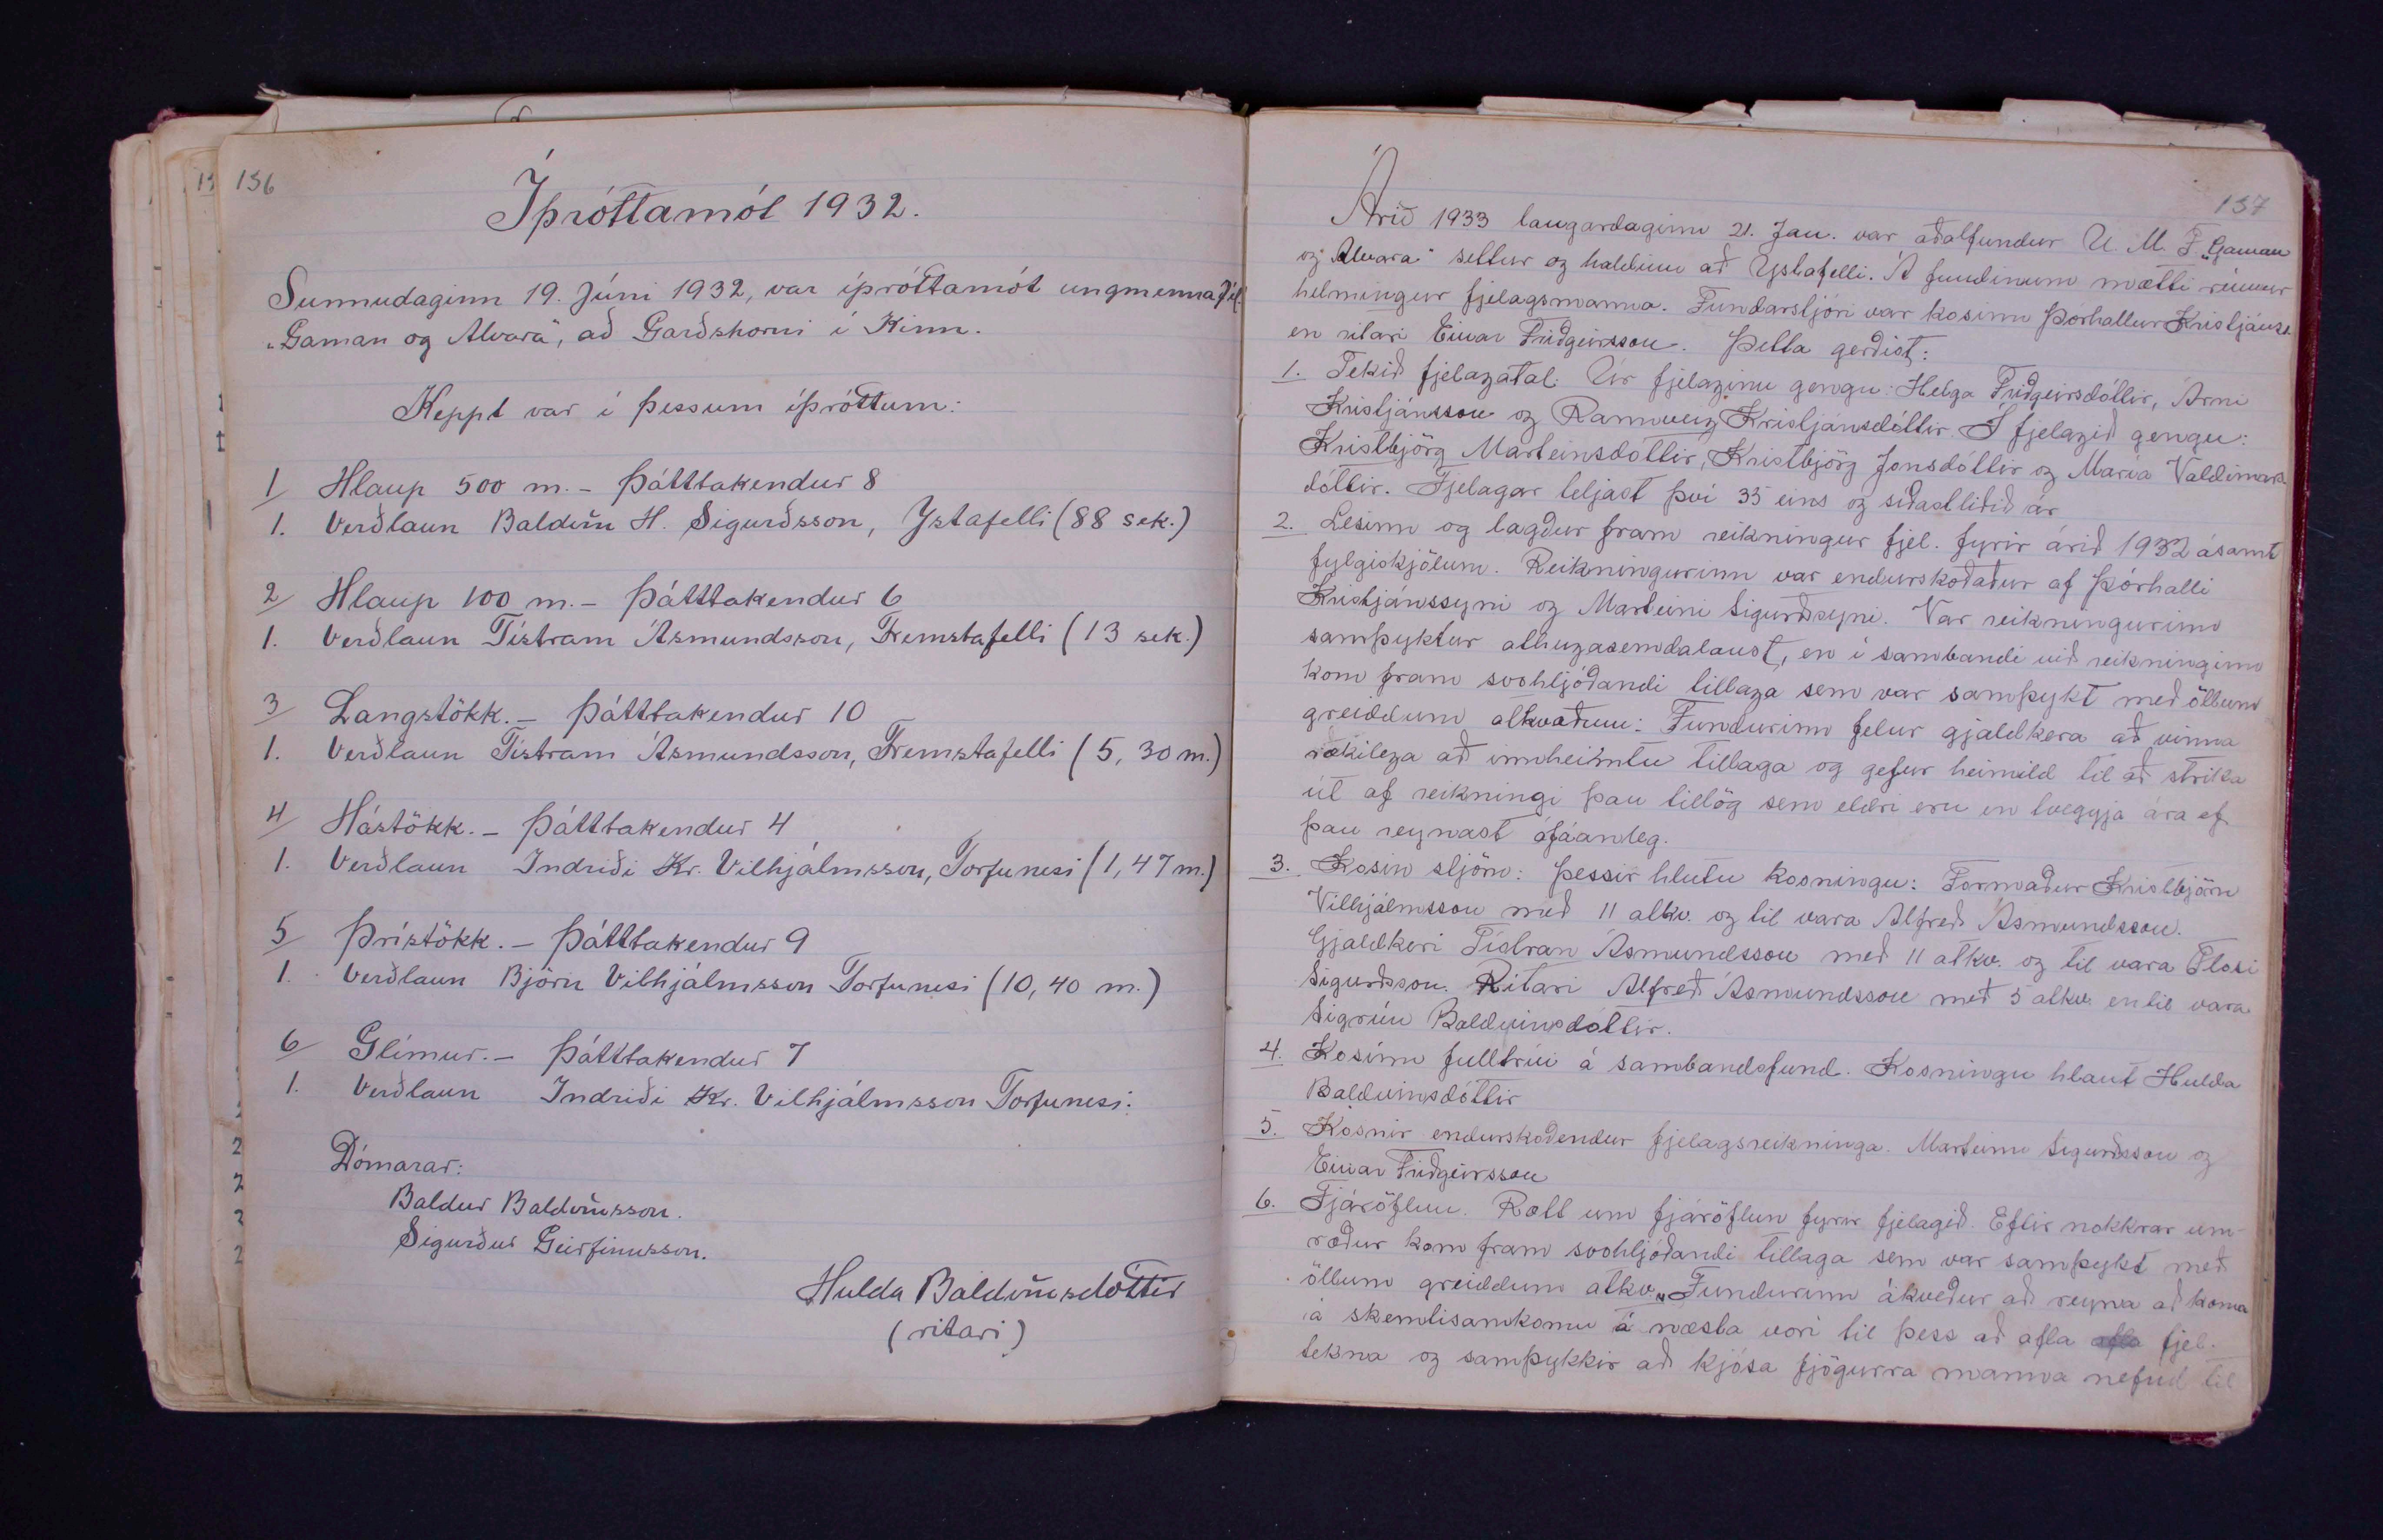 136
Íþróttamót 1932.
Sunnudaginn 19. Júni 1932, var íþróttamót ungmennafjel
„Gaman og Alvara", að Garðshorni í Kinn.
Keppt var í þessum íþróttum:
1 Hlaup 500 m. - Þátttakendur 8
1. Verðlaun Baldvin H. Sigurðsson, Ystafelli (88 sek.)
2 Hlaup 100 m. - Þátttakendur 6
1. Verðlaun Tístram Ásmundsson, Fremstafelli (13 sek.)
3 Langstökk. - Þátttakendur 10
1. Verðlaun Tístram Ásmundsson, Fremstafelli (5,30 m.)
4 Hástökk. - Þátttakendur 4
1. Verðlaun Indriði Kr. Vilhjálmsson, Torfunesi (1,47 m.)
5 Þrístökk. - Þátttakendur 9
1. Verðlaun Björn Vilhjálmsson Torfunesi (10,40 m.)
6 Glímur. - Þátttakendur 7
1. Verðlaun Indriði Kr. Vilhjálmsson Torfunesi.
Dómarar:
Baldur Baldvinsson.
Sigurður Geirfinnsson.
Hulda Baldvinsdóttir
(ritari)
137
Árið 1933 laugardaginn 21. Jan. var aðalfundur U. M. F. „Gaman
og Alvara" settur og haldinn að Ystafelli. Á fundinum mætti rúmur
helmingur fjelagsmanna. Fundarstjóri var kosinn Þórhallur Kristjánss.
en ritari Einar Friðgeirsson. Þetta gerðist:
1. Tekið fjelagatal. Úr fjelaginu gengu: Helga Friðgeirsdóttir, Árni
Kristjánsson og Rannveig Kristjánsdóttir. Í fjelagið gengu:
Kristbjörg Marteinsdóttir, Kristbjörg Jonsdóttir og María Valdimars
dóttir. Fjelagar teljast því 35 eins og síðastliðið ár
2. Lesinn og lagður fram reikningur fjel. fyrir árið 1932 ásamt
fylgiskjölum. Reikningurinn var endurskoðaður af Þórhalli
Kristjánssyni og Marteini Sigurðssyni. Var reikningurinn
samþyktur athugasemdalaust, en í sambandi við reikninginn
kom fram svohljóðandi tillaga sem var samþykt með öllum
greiddum atkvæðum: Fundurinn felur gjaldkera að vinna
rækilega að innheimtu tillaga og gefur heimild til að strika
út af reikningi þau tillög sem eldri eru en tveggja ára ef
þau reynast ófáanleg.
3. Kosin stjörn: Þessir hlutu kosningu: Formaður Kristbjörn
Vilhjálmsson með 11 atkv. og til vara Alfreð Ásmundsson.
Gjaldkeri Tístran Ásmundsson með 11 atkv. og til vara Flosi
Sigurðsson. Ritari Alfreð Ásmundsson með 5 atkv. en til vara
Sigrún Baldvinsdóttir.
4. Kosinn fulltrúi á sambandsfund. Kosningu hlaut Hulda
Baldvinsdóttir
5. Kosnir endurskoðendur fjelagsreikninga. Marteinn Sigurðsson og
Einar Friðgeirsson
6. Fjáröflun. Rætt um fjáröflun fyrir fjelagið. Eftir nokkrar um-
ræður kom fram svohljóðandi tillaga sem var samþykt með
öllum greiddum atkv. „Fundurinn ákveður að reyna að koma
á skemtisamkomu á næsta vori til þess að afla fjel.
tekna og samþykkir að kjósa fjögurra manna nefnd til